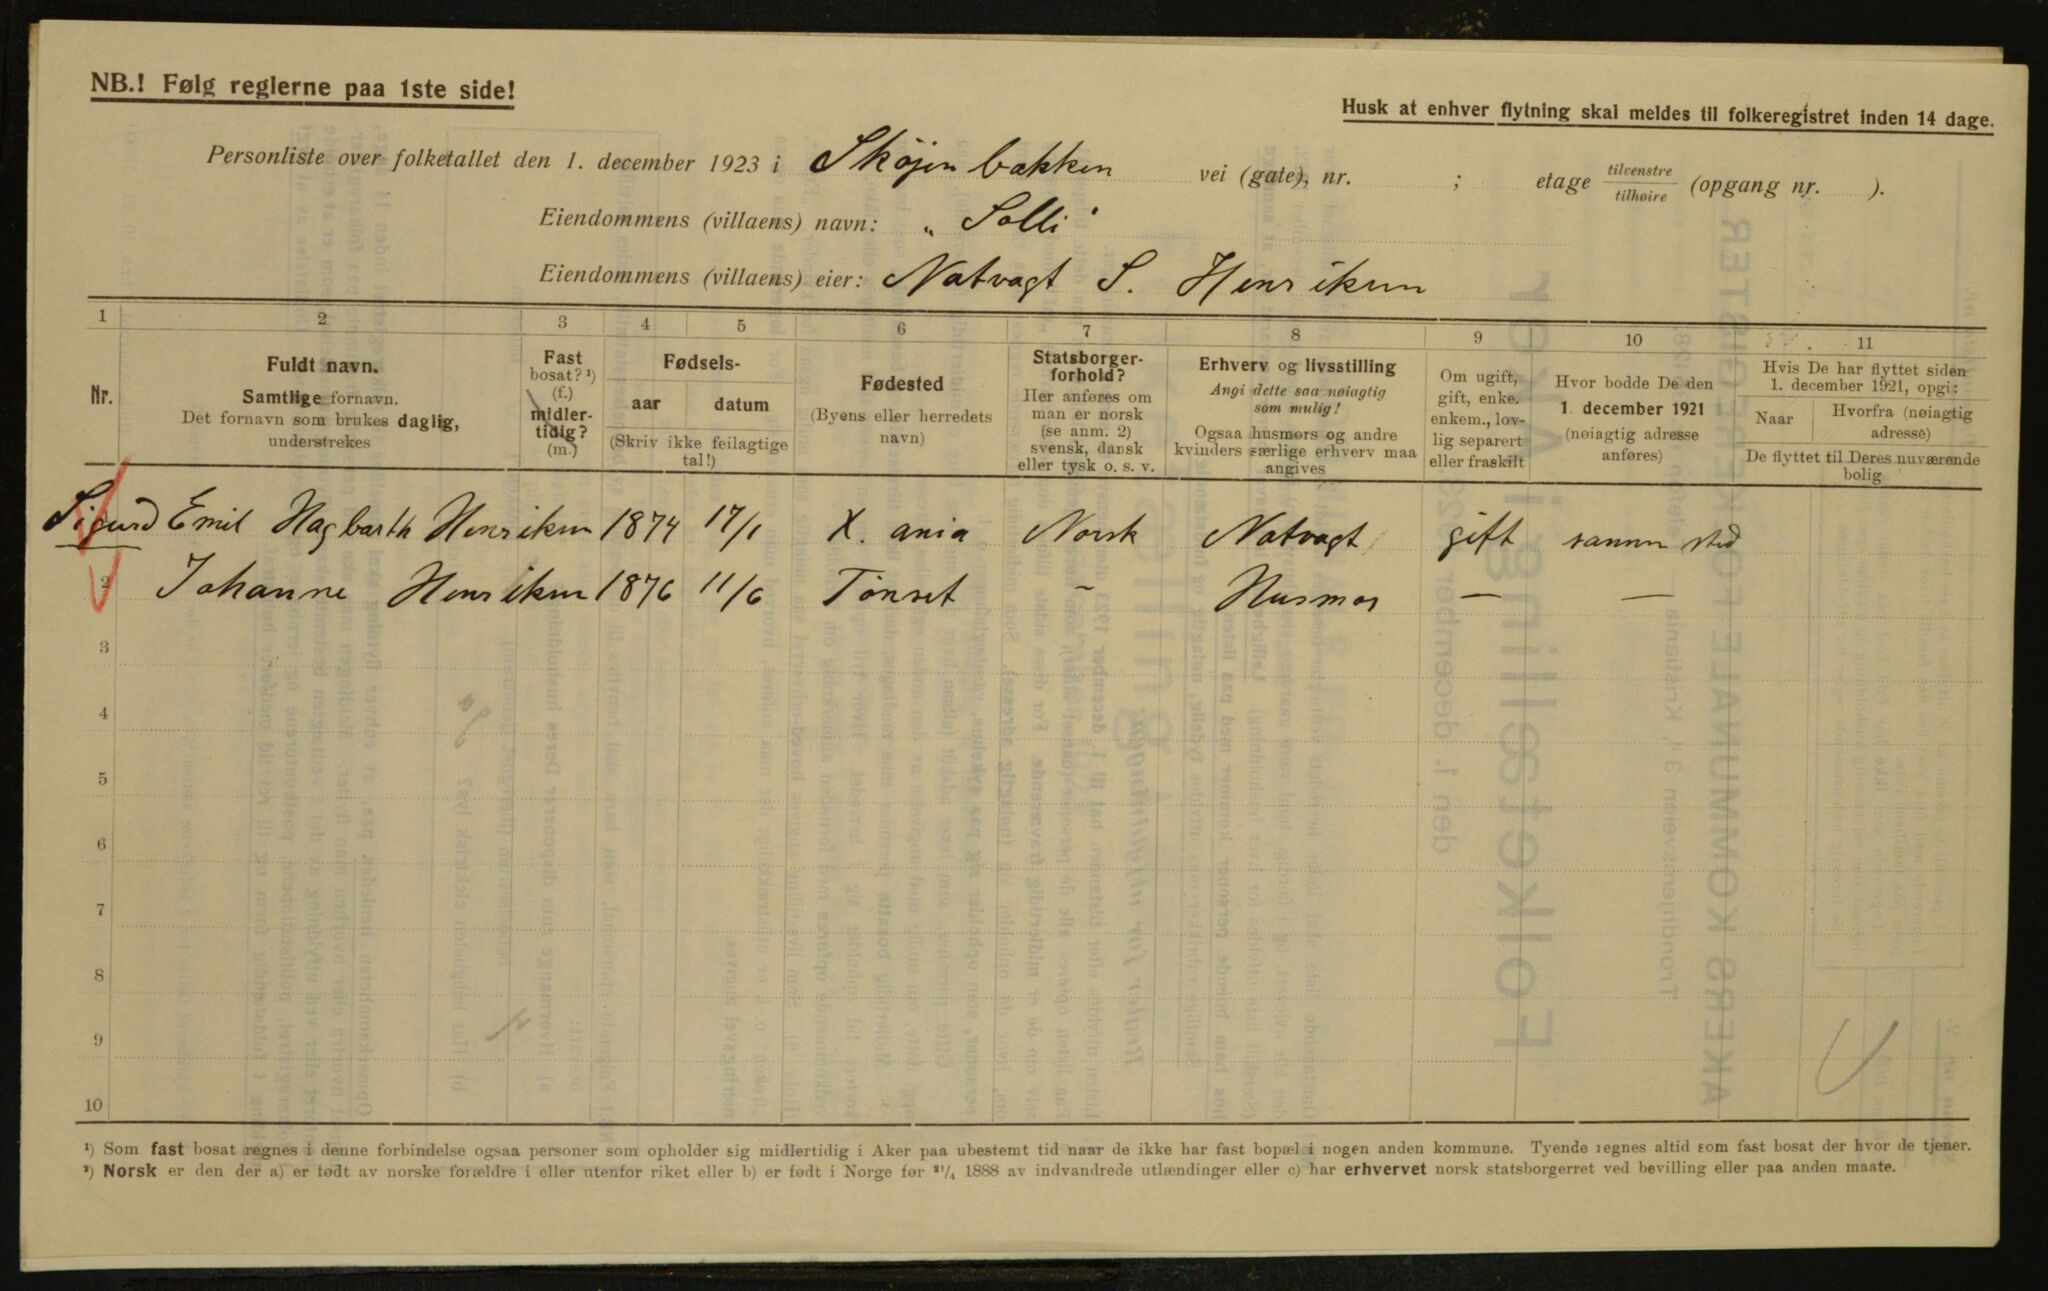 NB.! Følg reglerne paa 1ste side!
Husk at enhver flytning skal meldes til folkeregistret inden 14 dage.
Personliste over folketallet den 1. december 1923 i Skøjenbakken vei (gate), nr. ; etage tilvenstre / tilhøire (opgang nr. ).
Eiendommens (villaens) navn: „ Solli "
Eiendommens (villaens) eier: Natvagt S. Henriksen
1 2 3 4 5 6 7 8 9 10 11
Nr.
Fuldt navn.
Samtlige fornavn.
Det fornavn som brukes daglig,
understrekes
Fast
bosat? ¹)
(f.)
midler-
tidig?
(m.)
Fødsels-
aar datum
(Skriv ikke feilagtige
tal!)
Fødested
(Byens eller herredets
navn)
Statsborger-
forhold?
Her anføres om
man er norsk
(se anm. 2)
svensk, dansk
eller tysk o. s. v.
Erhverv og livsstilling
Angi dette saa nøiagtig
som mulig!
Ogsaa husmors og andre
kvinders særlige erhverv maa
angives
Om ugift,
gift, enke.
enkem., lov-
lig separert
eller fraskilt
Hvor bodde De den
1 december 1921
(nøiagtig adresse
anføres)
Hvis De har flyttet siden
1. december 1921, opgi:
Naar Hvorfra (nøiagtig
adresse)
De flyttet til Deres nuværende
bolig
Sigurd Emil Hagbarth Henriksen 1874 17/1 X. ania Norsk Natvagt gift samme sted
2 Johanne Henriksen 1876 11/6 Tønset - Husmor — —
3
4
5
6
7
8
9
10
¹) Som fast bosat regnes i denne forbindelse ogsaa personer som opholder sig midlertidig i Aker paa ubestemt tid naar de ikke har fast bopæl i nogen anden kommune. Tyende regnes altid som fast bosat der hvor de tjener.
²) Norsk er den der a) er født av norske forældre i eller utenfor riket eller b) er født i Norge før ²¹/₄ 1888 av indvandrede utlændinger eller c) har erhvervet norsk statsborgerret ved bevilling eller paa anden maate.